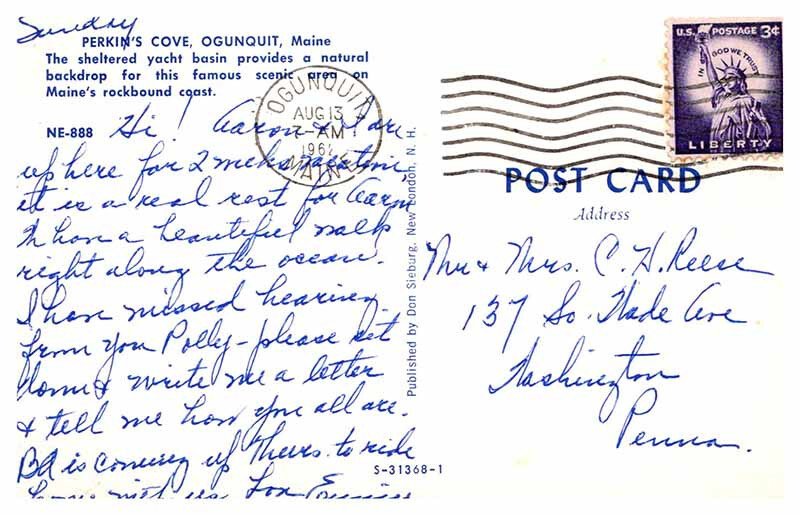 Sunday
PERKIN'S COVE, OGUNQUIT, Maine
The sheltered yacht basin provides a natural
backdrop for this famous scenic area on
Maine's rockbound coast.
NE-888
Hi! Aaron & I are
up here for 2 weeks vacation,
it is a real rest for Aaron,
have a beautiful walk
right along the ocean.
I have missed hearing
from you Polly - please sit
down & write me a letter
& tell me how you all are.
is coming up Thurs. to ride
home with us.
OGUNQUIT
AUG 13
7-AM
1962
MAINE
Published by Don Sieburg, New London, N. H.
U.S. POSTAGE 3¢
IN GOD WE TRUST
LIBERTY
POST CARD
Address
Mr & Mrs. C. H. Reese
137 So. Wade Ave
Washington
Penna.
S-31368-1